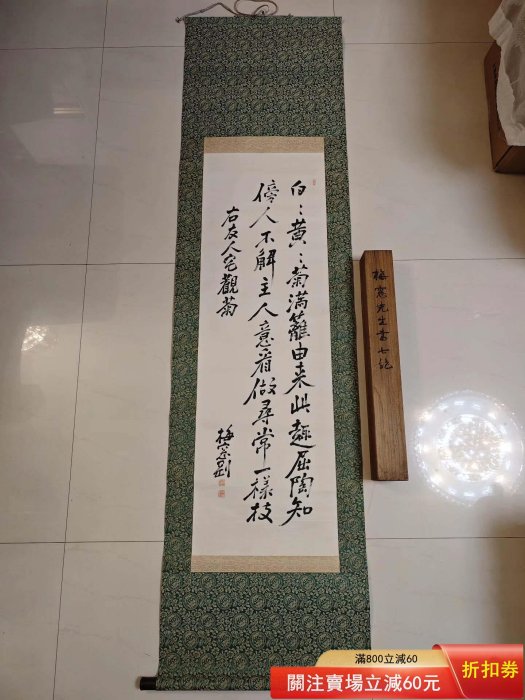 白〻黄〻菊満籬由来此趣屈陶知
傍人不解主人意看做尋常一樣枝
右友人宅觀菊
梅窓
梅窓先生書七絶
滿800立減60
關注賣場立減60元
折扣券